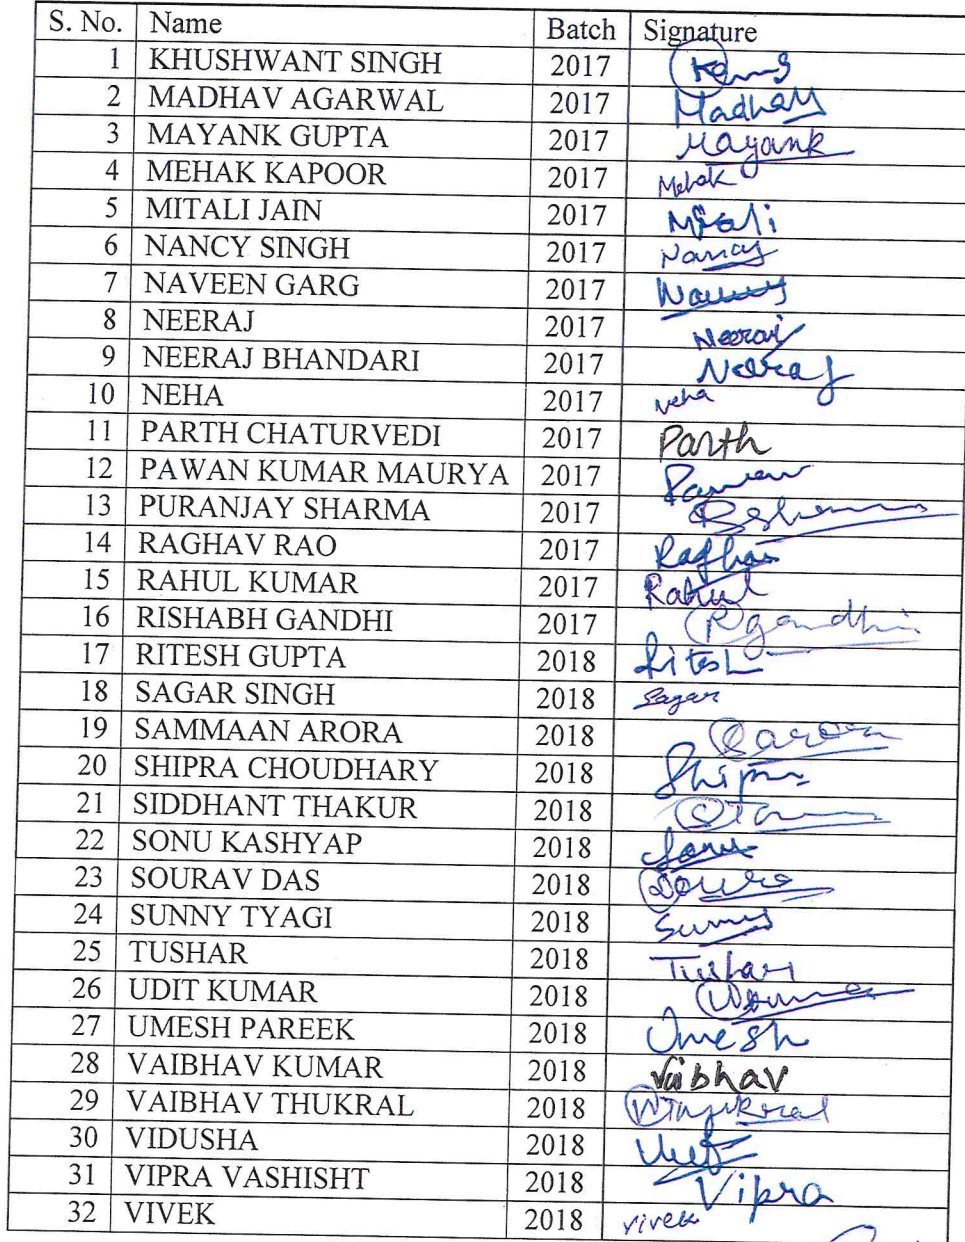 S. No. Name Batch Signature
1 KHUSHWANT SINGH 2017
2 MADHAV AGARWAL 2017 Madhav
3 MAYANK GUPTA 2017 Mayank
4 MEHAK KAPOOR 2017 Mehak
5 MITALI JAIN 2017
6 NANCY SINGH 2017 Nancy
7 NAVEEN GARG 2017
8 NEERAJ 2017 Neeraj
9 NEERAJ BHANDARI 2017 Neeraj
10 NEHA 2017 Neha
11 PARTH CHATURVEDI 2017 Parth
12 PAWAN KUMAR MAURYA 2017 Pawan
13 PURANJAY SHARMA 2017
14 RAGHAV RAO 2017 Raghav
15 RAHUL KUMAR 2017 Rahul
16 RISHABH GANDHI 2017 Rgandhi
17 RITESH GUPTA 2018 Ritesh
18 SAGAR SINGH 2018 Sagar
19 SAMMAAN ARORA 2018 Sarora
20 SHIPRA CHOUDHARY 2018 Shipra
21 SIDDHANT THAKUR 2018
22 SONU KASHYAP 2018 Sonu
23 SOURAV DAS 2018
24 SUNNY TYAGI 2018 Sunny
25 TUSHAR 2018 Tushar
26 UDIT KUMAR 2018
27 UMESH PAREEK 2018 Umesh
28 VAIBHAV KUMAR 2018 Vaibhav
29 VAIBHAV THUKRAL 2018
30 VIDUSHA 2018
31 VIPRA VASHISHT 2018 Vipra
32 VIVEK 2018 vivek